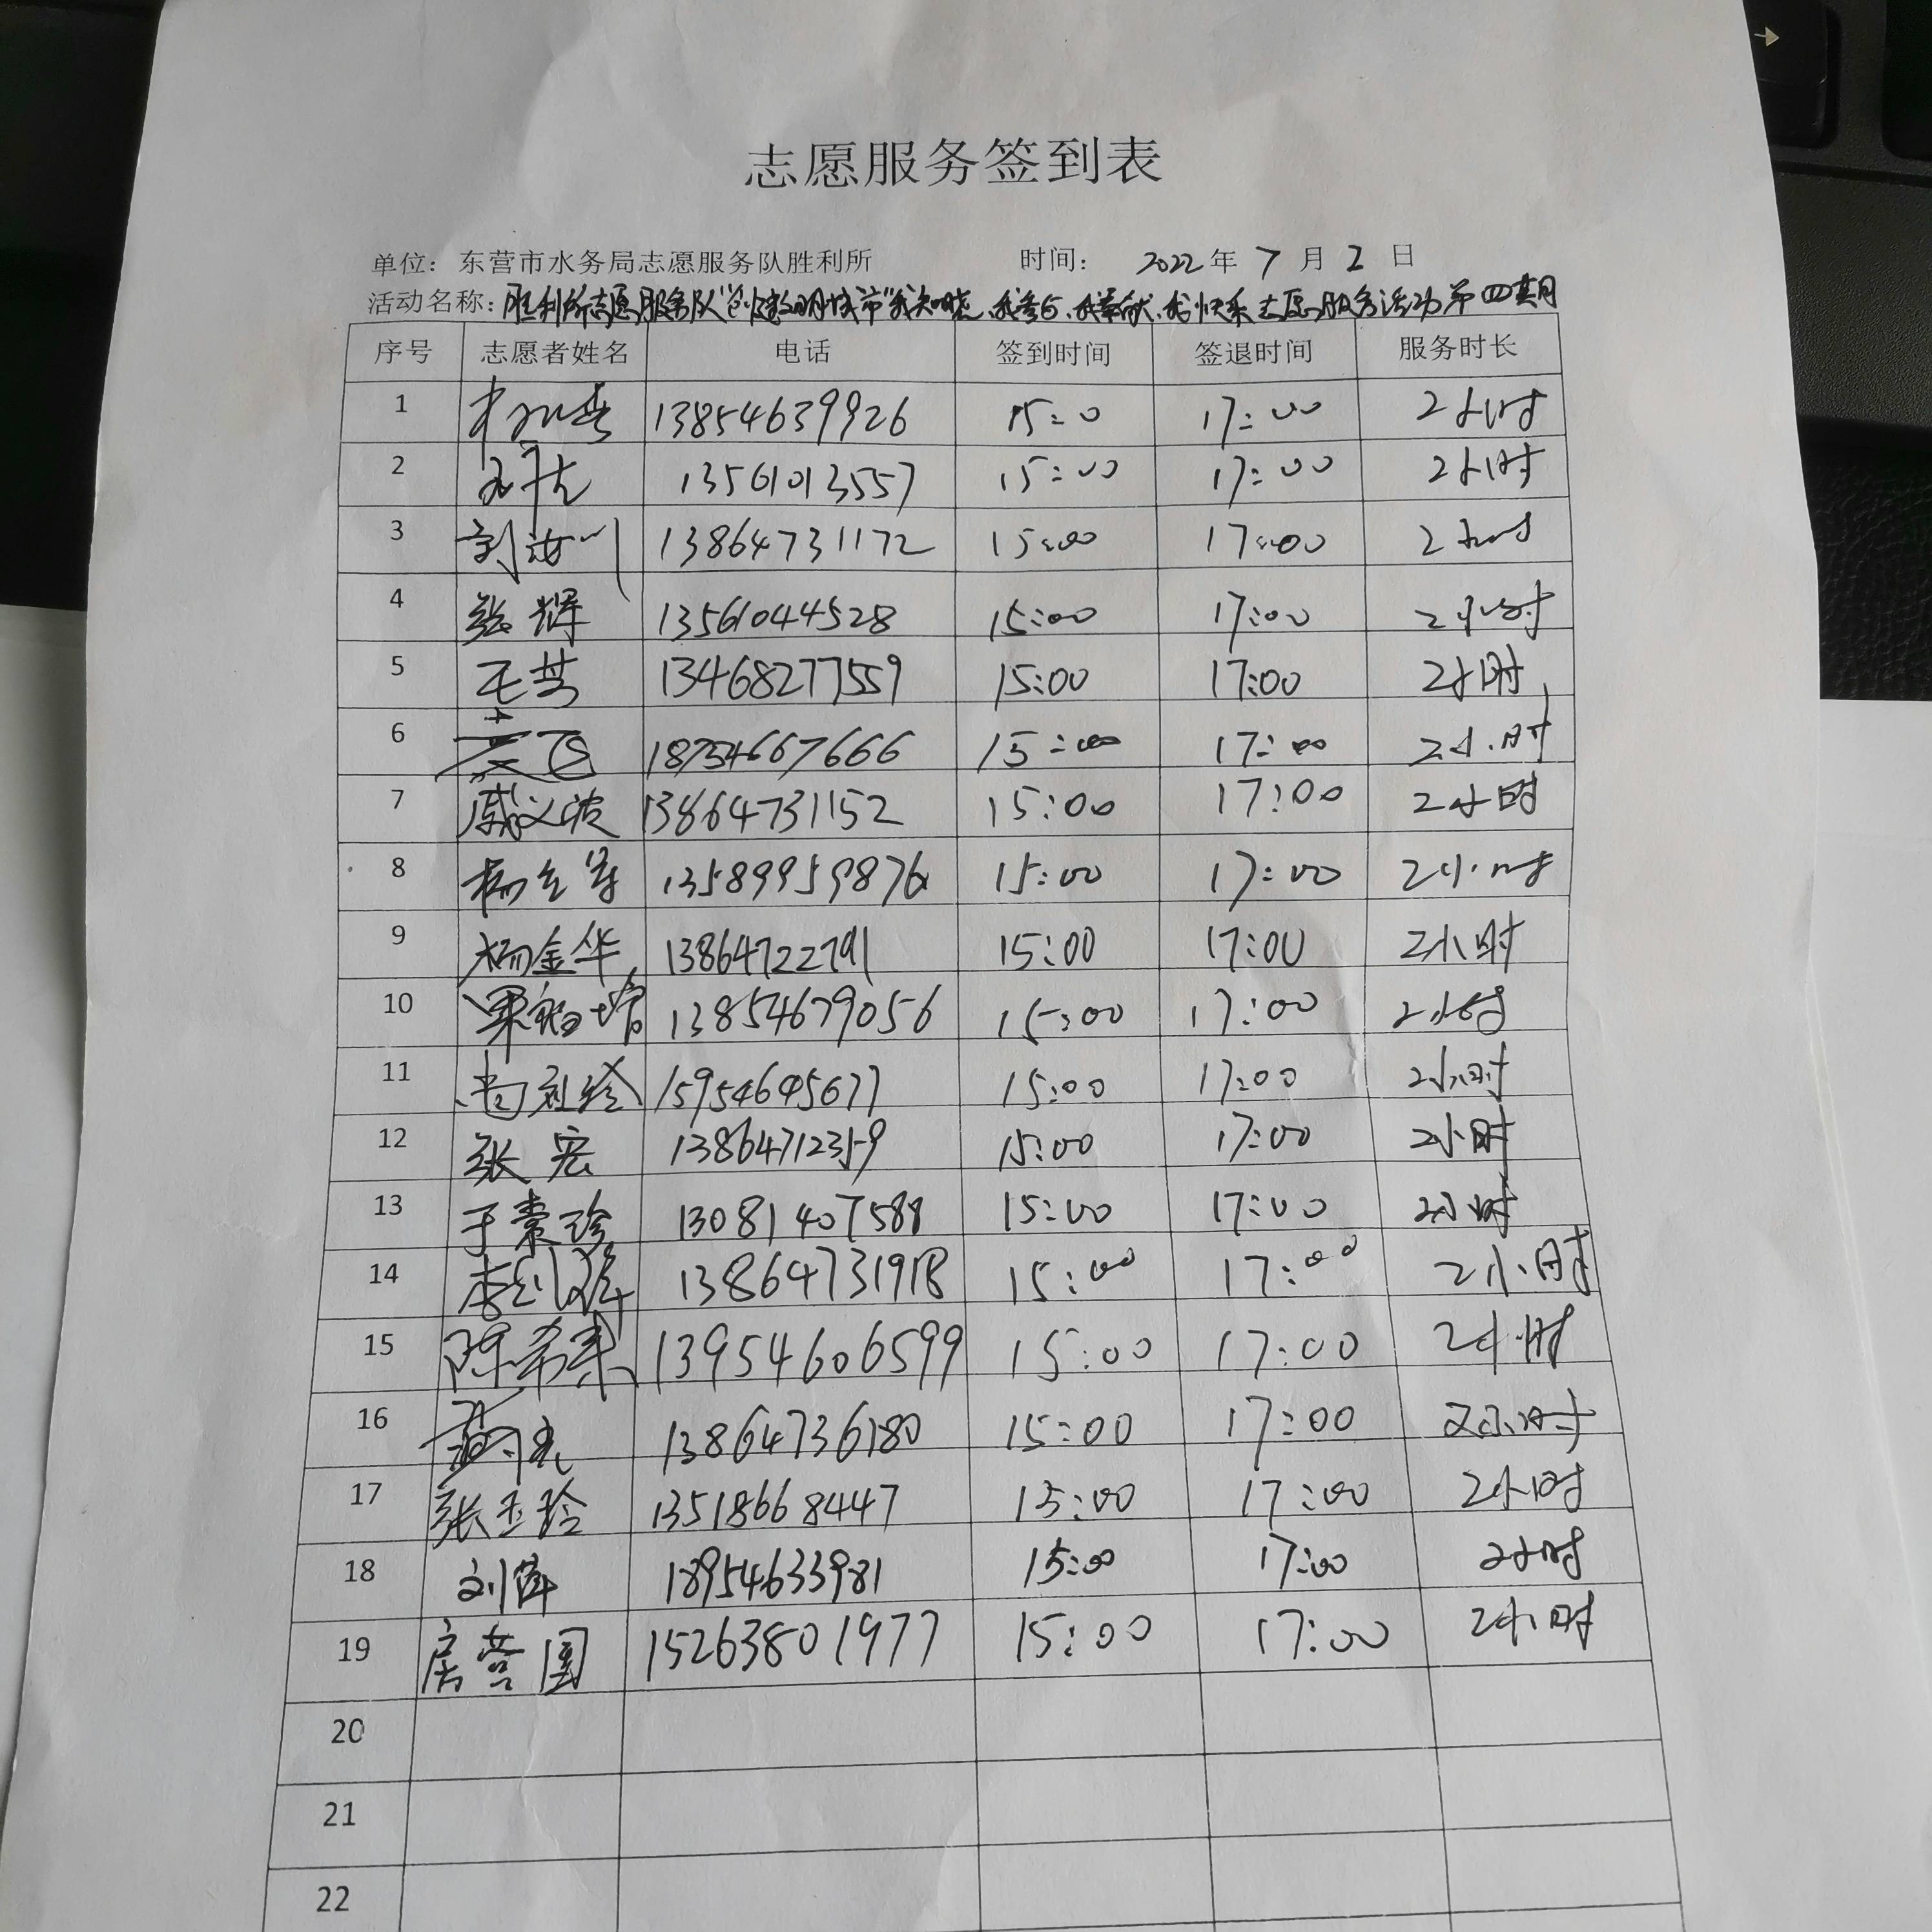 志愿服务签到表
单位：东营市水务局志愿服务队胜利所 时间： 2022年 7 月 2 日
活动名称：胜利所志愿服务队"创建文明城市"我知晓、我参与、我奉献、我快乐志愿服务活动第四期
序号 志愿者姓名 电话 签到时间 签退时间 服务时长
1 13854639926 15:0 17:00 2小时
2 13561013557 15:00 17:00 2小时
3 刘汝川 13864731172 15:00 17:00 2小时
4 张辉 13561044528 15:00 17:00 2小时
5 王芳 13468277559 15:00 17:00 2小时
6 18754667666 15:00 17:00 2小时
7 戚文波 13864731152 15:00 17:00 2小时
8 13589959876 15:00 17:00 2小时
9 杨金华 13864722791 15:00 17:00 2小时
10 13854679056 15:00 17:00 2小时
11 15954645677 15:00 17:00 2小时
12 张宏 13864712359 15:00 17:00 2小时
13 于素珍 13081407588 15:00 17:00 2小时
14 13864731918 15:00 17:00 2小时
15 13954606599 15:00 17:00 2小时
16 13864736180 15:00 17:00 2小时
17 张玉玲 13518668447 15:00 17:00 2小时
18 刘伟 18954633981 15:00 17:00 2小时
19 房营圆 15263801977 15:00 17:00 2小时
20
21
22